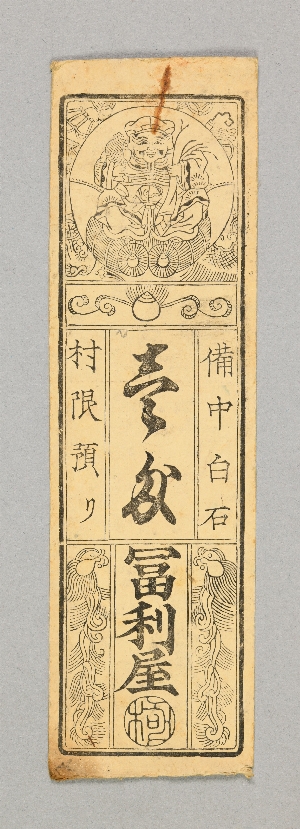 備中白石
壱匁
冨利屋
村限預り